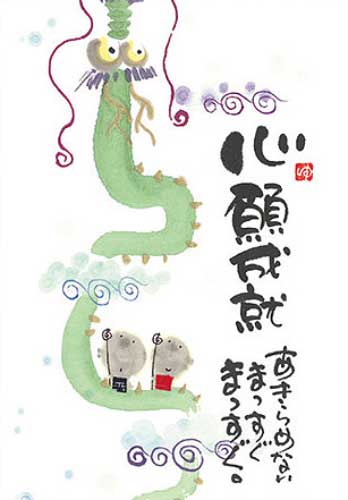 心願成就
あきらめない
まっすぐ
まっすぐ。
ゆ